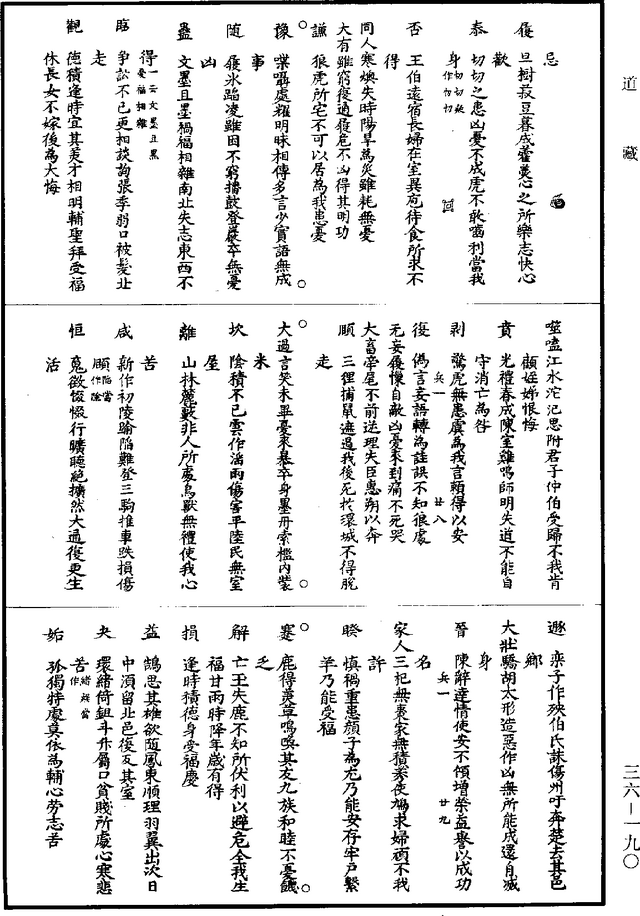 道藏
忌
履　旦樹菽豆暮成藿羹心之所樂志快心
歡
泰　切切之患凶憂不成虎不敢㗖利當我
身　切切疑作忉忉
否　王伯遠宿長婦在室異庖待食所求不
得
同人　寒燠失時陽旱為災雖耗無憂
大有　雖窮復通履危不凶得其明功
謙　狼虎所宅不可以居為我患憂
豫　喋囁處耀明昧相傳多言少實語無成
事
隨　履氷蹈凌雖困不窮播鼓登巖卒無憂
凶
蠱　文墨且墨禍福相雜南北失志東西不
得　一云文墨且黑憂福相雜
臨　争訟不已更相談訽張季弱口被髮北
走
觀　德積逢時宜其美才相明輔聖拜受福
休長女不嫁後為大悔
噬嗑　江水沱汜思附君子仲伯受歸不我肯
顧姪娣恨悔
賁　光禮春成陳室雞鳴師明失道不能自
守消亡為咎
兵一　廿八
剥　驚虎無患虞為我言賴得以安
復　偽言妄語轉為詿誤不知狼處
无妄　履慄自敵凶憂來到痛不死哭
大畜　帝尾不前迷理失臣惠朔以奔
頤　三狸捕鼠遮遏我後死於環城不得脫
走
大過　言笑未畢憂來暴卒身墨丹索檻內裝
米
坎　陰積不已雲作淫雨傷害平陸民無室
屋
離　山林麓藪非人所處鳥獸無禮使我心
苦
咸　新作初陵踰陷難登三駒推車跌損傷
頤　陷當作險
恒　鳧欲惙惙行曠聽絕擴然大過復更生
活
遯　桼子作殃伯氏誅傷州吁奔楚去其邑
鄉
大壯　驕胡太形造惡作凶無所能成還自滅
身
兵一　廿九
晉　陳辭達情使安不傾增榮益譽以成功
名
家人　三祀無裘家無積莠使鳩求婦頑不我
許
睽　慎禍重患顏子為尤乃能安存牢戶繫
羊乃能受福
蹇　鹿得美草鳴喚其友九族和睦不憂饑
乏
解　亡王失鹿不知所伏利以避危全我生
福甘雨時降年歲有得
損　逢時積德身受福慶
益　鵠思其雄欲隨鳳東順理羽翼出次日
中須留北邑復反其室
夬　環緒倚鉏斗升屬口貧賤所處心寒悲
苦　緒疑當作
姤　孤獨特處莫依為輔心勞志苦
三六－一九〇